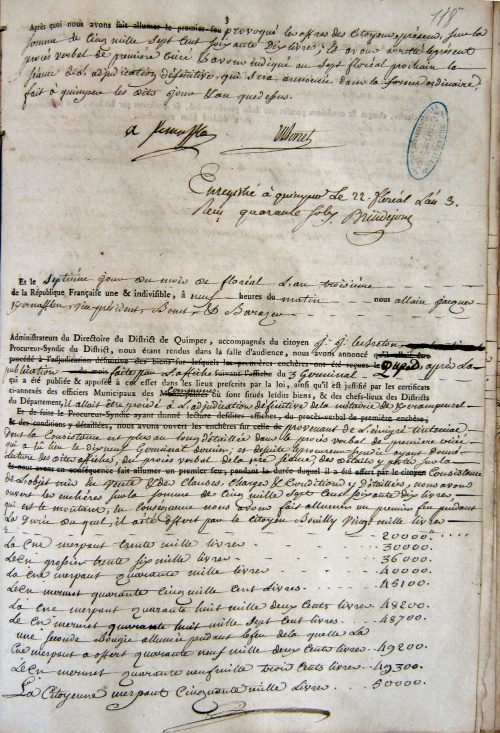 118
3
Après quoi nous avons fait allumer le premier feu provoqué les offres des Citoyens présens, sur la
somme de Cinq mille Sept Cent Soixante dix livres, et avons arrêté le présent
procès verbal de première Criée et avons indiqué au Sept floréal prochain la
séance d'adjudication définitive, qui sera annoncée dans la forme ordinaire,
fait à quimper les dits jour & an que dessus.
Enregistré à quimper le 22 floréal l'an 3.
Reçu quarante sols,
Et le Septième jour du mois de floréal L'an troisième
de la République Française une & indivisible, à neuf heures du matin nous allain jacques
vice président, Bonet, & Barazer
Administrateurs du Directoire du District de Quimper, accompagnés du citoyen
Procureur-Syndic du District, nous étant rendus dans la salle d'audience, nous avons annoncé qu'il allait être
procédé à l'adjudication définitive des biens sur lesquels les premières enchères ont été reçues le après la
publication faite par l'affiche suivant l'affiche du 3 Germinal
qui a été publiée & apposée à cet effet dans les lieux prescrits par la loi, ainsi qu'il est justifié par les certificats
ci-annexés des officiers Municipaux des Communes où sont situés lesdits biens, & des chefs-lieux des Districts
du Département, il allait être procédé à l'adjudication définitive de
Et de suite le Procureur-Syndic ayant donné lecture desdites affiches, du procès-verbal de première enchère
& des conditions y détaillées, nous avons ouvert les enchères sur celle de provenant de L'émigré
dont la Consistance est plus au long détaillée dans le procès verbal de première criée
Germinal dernier, et de suite le procureur Syndic ayant donné
lecture des dites affiches, du procès verbal de la
& nous avons en conséquence fait allumer un premier feu, pendant la durée duquel il a été offert par le citoyen Consistance
de L'objet mis en Vente & des Clauses, Charges & Conditions y détaillées, nous avons
ouvert les enchères sur la somme de Cinq mille Sept Cent Soixante dix livres,
qui est le montant, en Conséquence nous avons fait allumer un premier feu pendant
La durée du quel, il a été offert par le citoyen Vingt mille livres
20000.
La Cne merpaut trente mille livres 30000.
Le Cn trente Six mille livres 36000.
La Cne merpaut quarante mille livres 40000.
Le Cn mornet quarante Cinq mille Cent Livres 45100.
La Cne merpaut quarante huit mille deux Cents livres 48200.
Le Cn mornet quarante huit mille Sept Cent livres 48700.
une Seconde bougie allumée pendant le feu de la quelle La
Cne merpaut a offert quarante neuf mille deux Cents livres 49200.
Le Cn mornet quarante neuf mille trois Cents livres 49300.
La Citoyenne merpaut Cinquante mille Livres 50000.